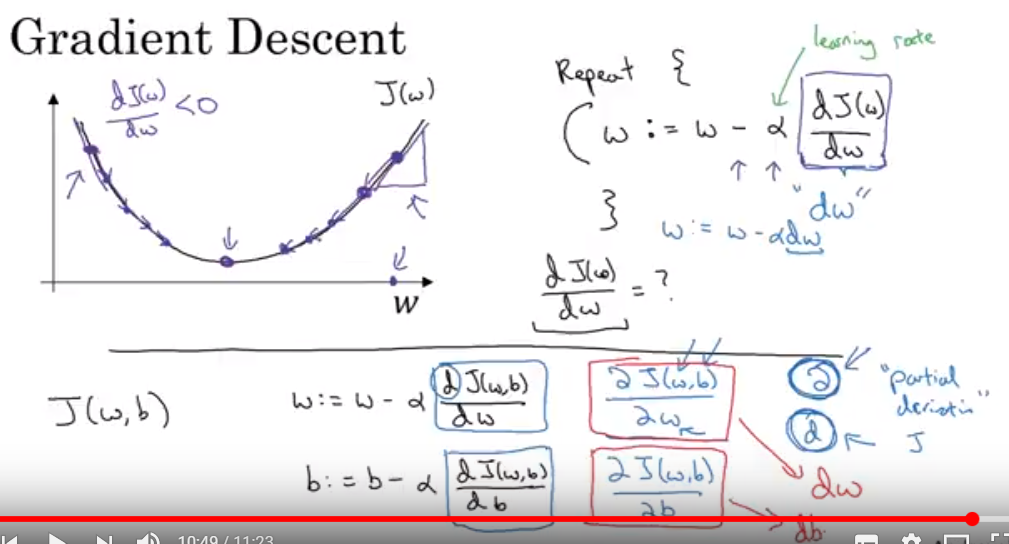 Gradient Descent
learning rate
dJ(w)/dw < 0
J(w)
Repeat {
w := w - α dJ(w)/dw
"dw"
}
w := w - αdw
w
dJ(w)/dw = ?
J(w,b)
w := w - α dJ(w,b)/dw
∂J(w,b)/∂w
∂
"partial
derivative"
d
J
dw
b := b - α dJ(w,b)/db
∂J(w,b)/∂b
db
10:49 / 11:23